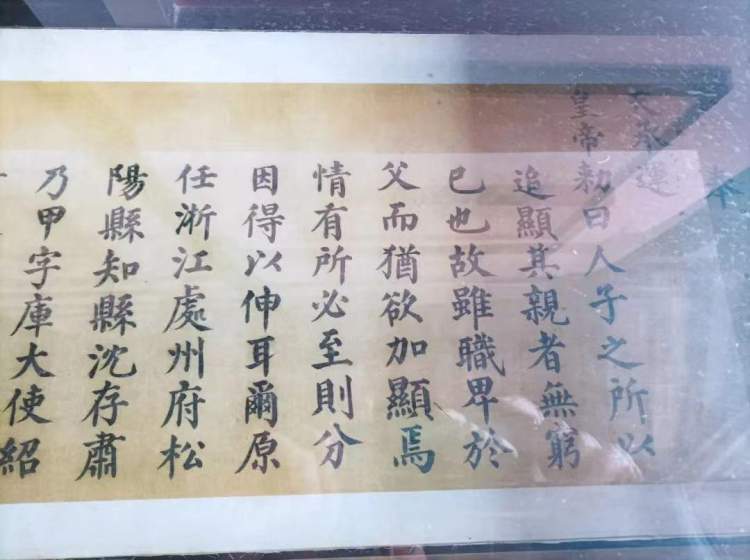 奉
天承運
皇帝勑曰人子之所以
追顯其親者無窮
已也故雖職卑於
父而猶欲加顯焉
情有所必至則分
因得以伸耳爾原
任浙江處州府松
陽縣知縣沈存肅
乃甲字庫大使紹